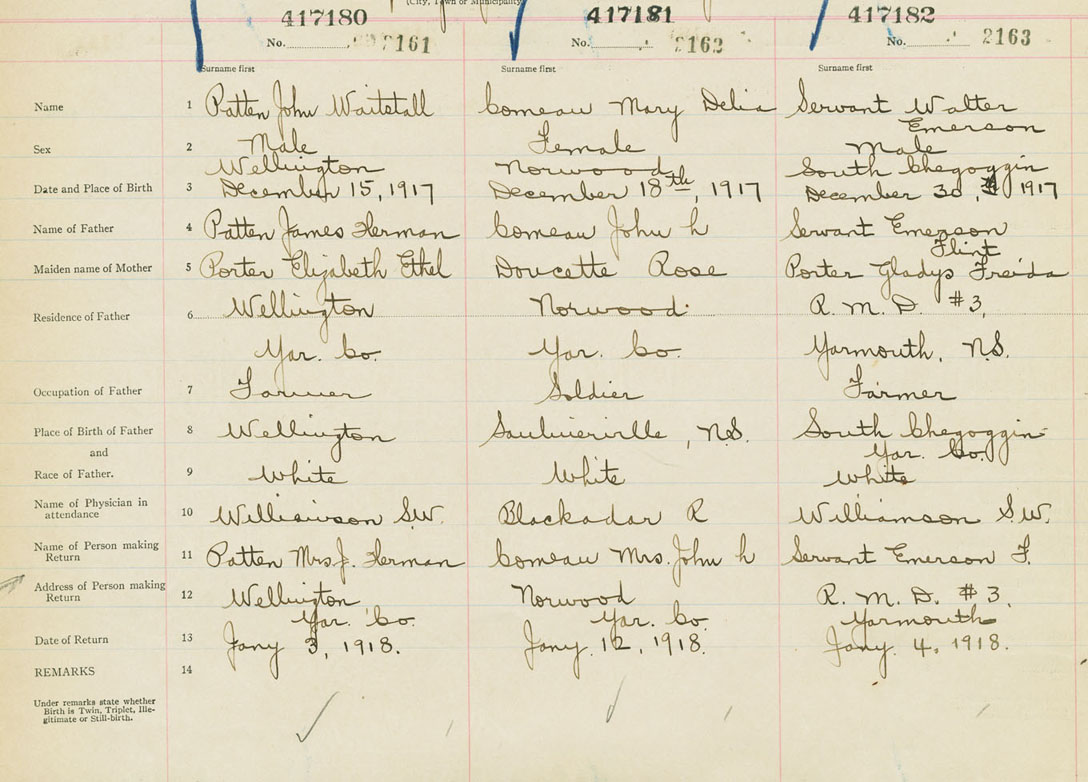 (City, Town or Municipality
417180 417181 417182
No. 2161 No. 2162 No. 2163
Surname first Surname first Surname first
Name 1 Patten John Waitstall Comeau Mary Delia Servant Walter
Emerson
Sex 2 Male Female Male
Wellington Norwood South Chegoggin
Date and Place of Birth 3 December 15, 1917 December 18th, 1917 December 30, 1917
Name of Father 4 Patten James Herman Comeau John h Servant Emerson
Flint
Maiden name of Mother 5 Porter Elizabeth Ethel Doucette Rose Porter Gladys Freida
Residence of Father 6 Wellington Norwood R. M. D. #3,
Yar. Co. Yar. Co. Yarmouth, N.S.
Occupation of Father 7 Farmer Soldier Farmer
Place of Birth of Father 8 Wellington Saulnierville, N.S. South Chegoggin
and Yar. Co.
Race of Father. 9 White White White
Name of Physician in
attendance 10 Williamson S.W. Blackadar R Williamson S.W.
Name of Person making
Return 11 Patten Mrs. J. Herman Comeau Mrs. John h Servant Emerson F.
Address of Person making
Return 12 Wellington Norwood R. M. D. #3.
Yar. Co. Yar. Co. Yarmouth
Date of Return 13 Jany 3, 1918. Jany. 12, 1918. Jany. 4, 1918.
REMARKS 14
Under remarks state whether
Birth is Twin, Triplet, Ille-
gitimate or Still-birth.